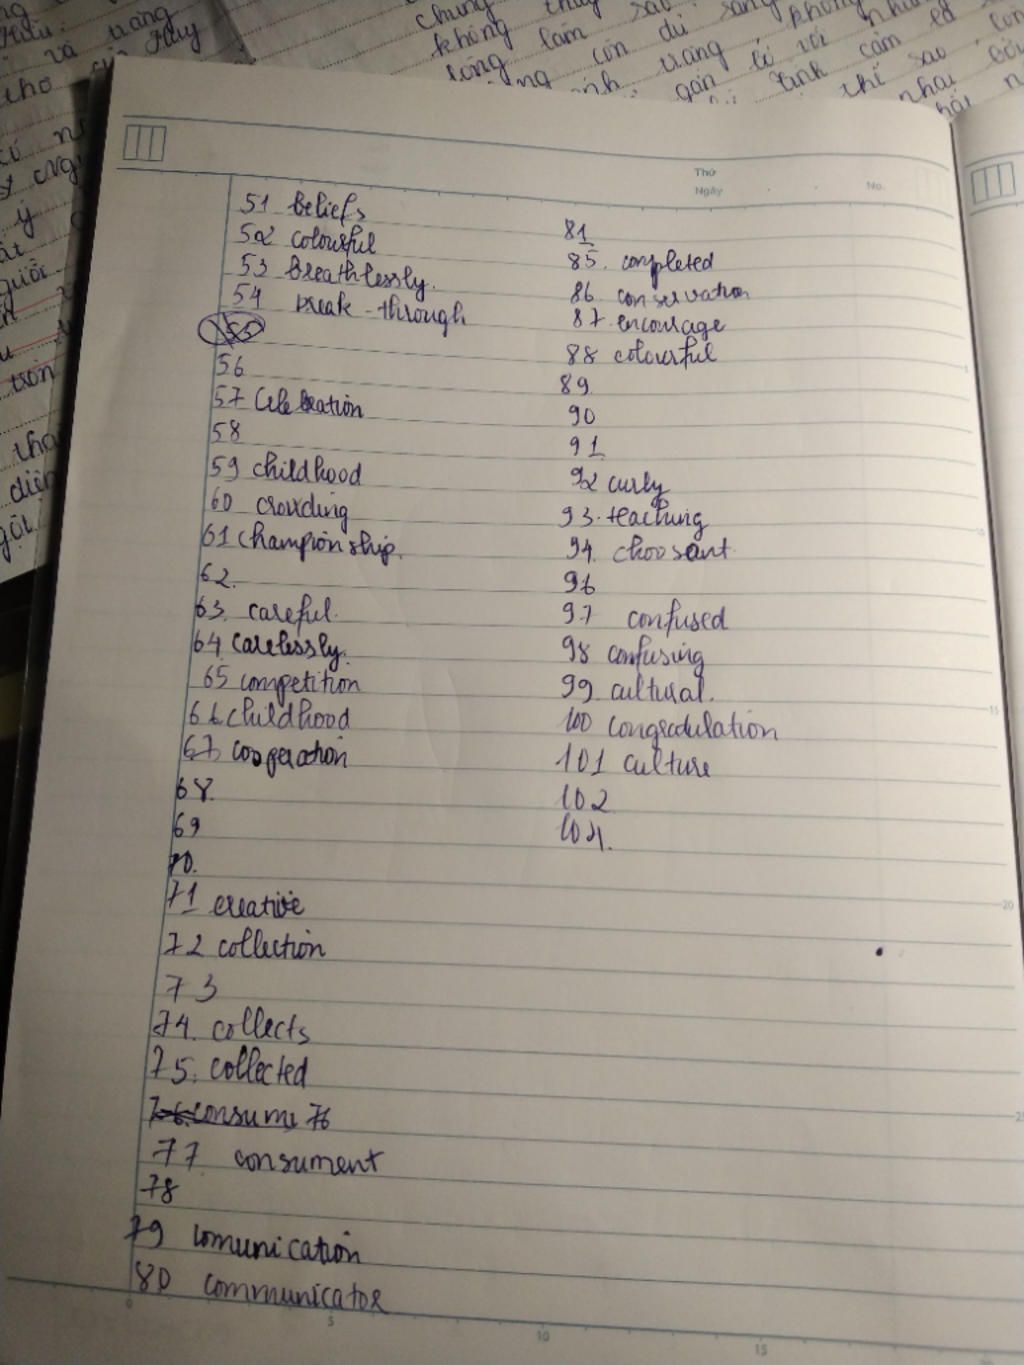 chung thủy sao sáng không nhưng
không làm còn dù trăng có với tình cảm
lòng
gần
thế sao
nhai
và trăng
thơ
Thứ
Ngày
No.
51 beliefs
52 colourful
53 breathlessly.
54 break-through
55
56
57 Celebration
58
59 childhood
60 crowding
61 championship.
62.
63. careful.
64 carelessly.
65 competition
66 childhood
67 cooperation
68.
69
70.
71 creative
72 collection
73
74. collects
75. collected
76. consume 76
77 consument
78
79 comunication
80 communicator
81
85. completed
86 conservation
87. encourage
88 colourful
89.
90
91
92 curly
93. teaching
94. choosant
96
97 confused
98 confusing
99 cultural.
100 congradulation
101 culture
102
104.
5
10
15
20